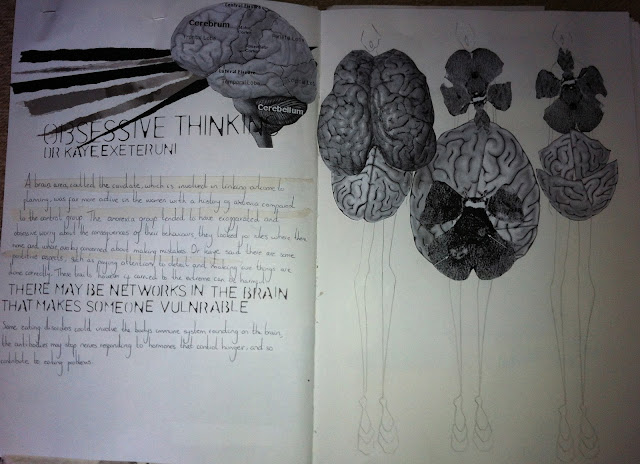 Central Fissure
Cerebrum
Frontal Lobe
Lateral Fissure
Temporal Lobe
Cerebellum
OBSESSIVE THINKING
DR KAYE EXETER UNI
A brain area, called the caudate, which is involved in linking actions to
planning, was far more active in the women with a history of anorexia compared
to the control group. The anorexia group tended to have exaggerated and
obsessive worry about the consequences of their behaviours, they looked for rules where there
none and were overly concerned about making mistakes. Dr Kaye said: there are some
positive aspects, such as paying attention to detail and making sure things are
done correctly. These traits however if carried to the extreme can be harmful
THERE MAY BE NETWORKS IN THE BRAIN
THAT MAKES SOMEONE VULNRABLE
Some eating disorders could involve the bodys immune system rounding on the brain,
the antibodies may stop nerves responding to hormones that control hunger, and so
contribute to eating patterns.